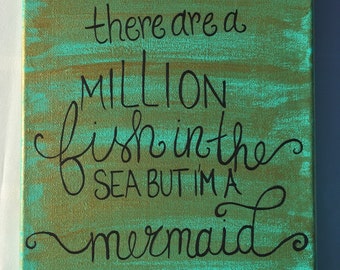 there are a
MILLION
fish in the
SEA BUT IM A
mermaid